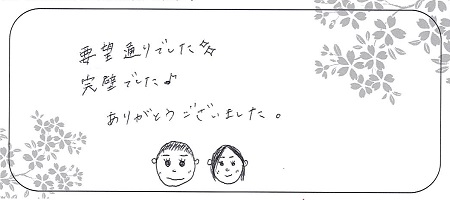 要望通りでした☆☆
完璧でした♪
ありがとうございました。